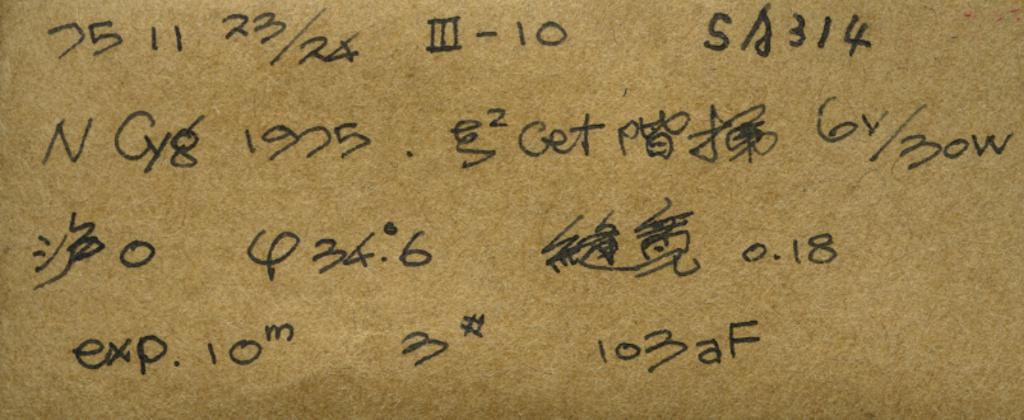 7511 23/24 III-10 SA314
N Cyg 1975. ξ² Cet 階梯 6v/30W
净0 φ34.°6 縫寬 0.18
exp. 10ᵐ 3# 103aF